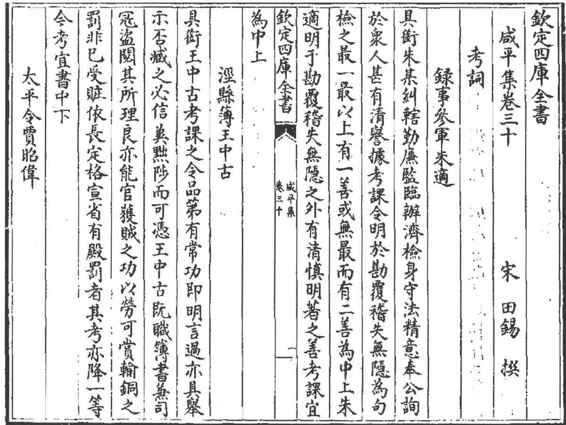 欽定四庫全書
咸平集卷三十
宋 田錫 撰
考詞
録事參軍朱適
具銜朱某糾轄勤廉監臨辦濟檢身守法精意奉公詢
於衆人甚有清譽據考課令明於勘覆稽失無隱為句
檢之最一最以上有一善或無最而有二善為中上朱
適明于勘覆稽失無隱之外有清慎明著之善考課宜
為中上
欽定四庫全書
咸平集
卷三十
一
涇縣簿王中古
具銜王中古考課之令品第有常功即明言過亦具舉
示否臧之必信兾黜陟而可憑王中古阮職簿書兼司
冦盜閲其所理良亦能官獲賊之功以勞可賞輸銅之
罰非已受贓依長定格宣省有殿罰者其考亦降一等
令考宜書中下
太平令賈昭偉